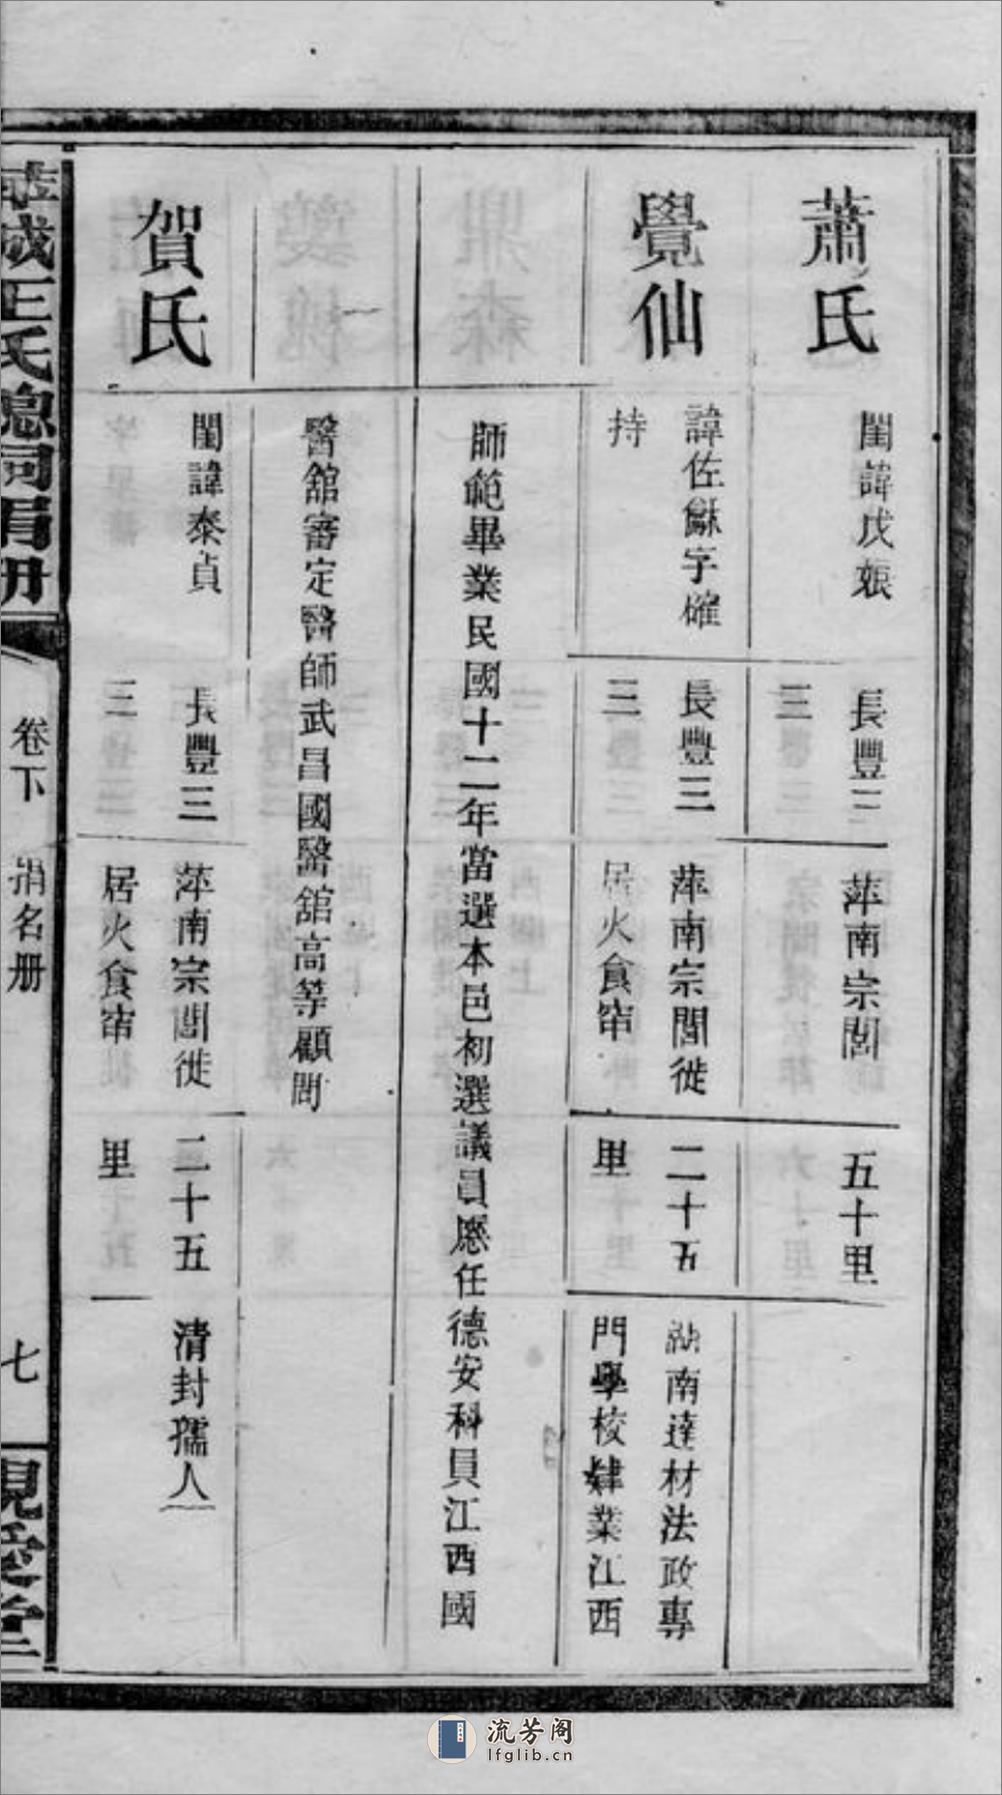 蕭氏
閨諱戊娠
長豐三
三
萍南宗閭
五十里
覺仙
諱佐龢字確
持
長豐三
三
萍南宗閭徙
居火食窜
二十五
里
湖南達材法政專
門學校肄業江西
師範畢業民國十二年當選本邑初選議員歷任德安科員江西國
醫舘審定醫師武昌國醫舘高等顧問
賀氏
閨諱泰貞
長豐三
三
萍南宗閭徙
居火食窜
二十五
里
清封孺人
王氏總祠捐册
卷下
捐名册
七
親愛堂
流芳阁
lfglib.cn